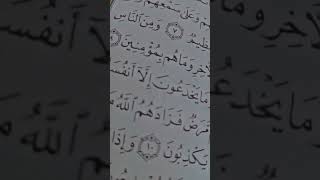 وَعَلَىٰ سَمْعِهِمْ
٧ وَمِنَ النَّاسِ
وَمَا هُم بِمُؤْمِنِينَ
وَمَا يَخْدَعُونَ إِلَّا أَنفُسَ
مَّرَضٌ فَزَادَهُمُ اللَّهُ
يَكْذِبُونَ ١٠ وَإِذَا